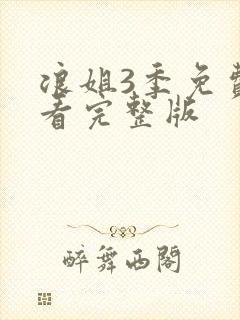 浪姐3季免费
看完整版
醉舞西阁